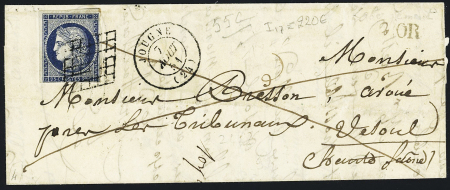 REPUB. FRANC.
JOUGNE
7
AOUT
51
(24)
55c
I17 = 220€
OR
Monsieur
Monsieur Bresson, avoué
près les Tribunaux
Vesoul
(haute Saône)